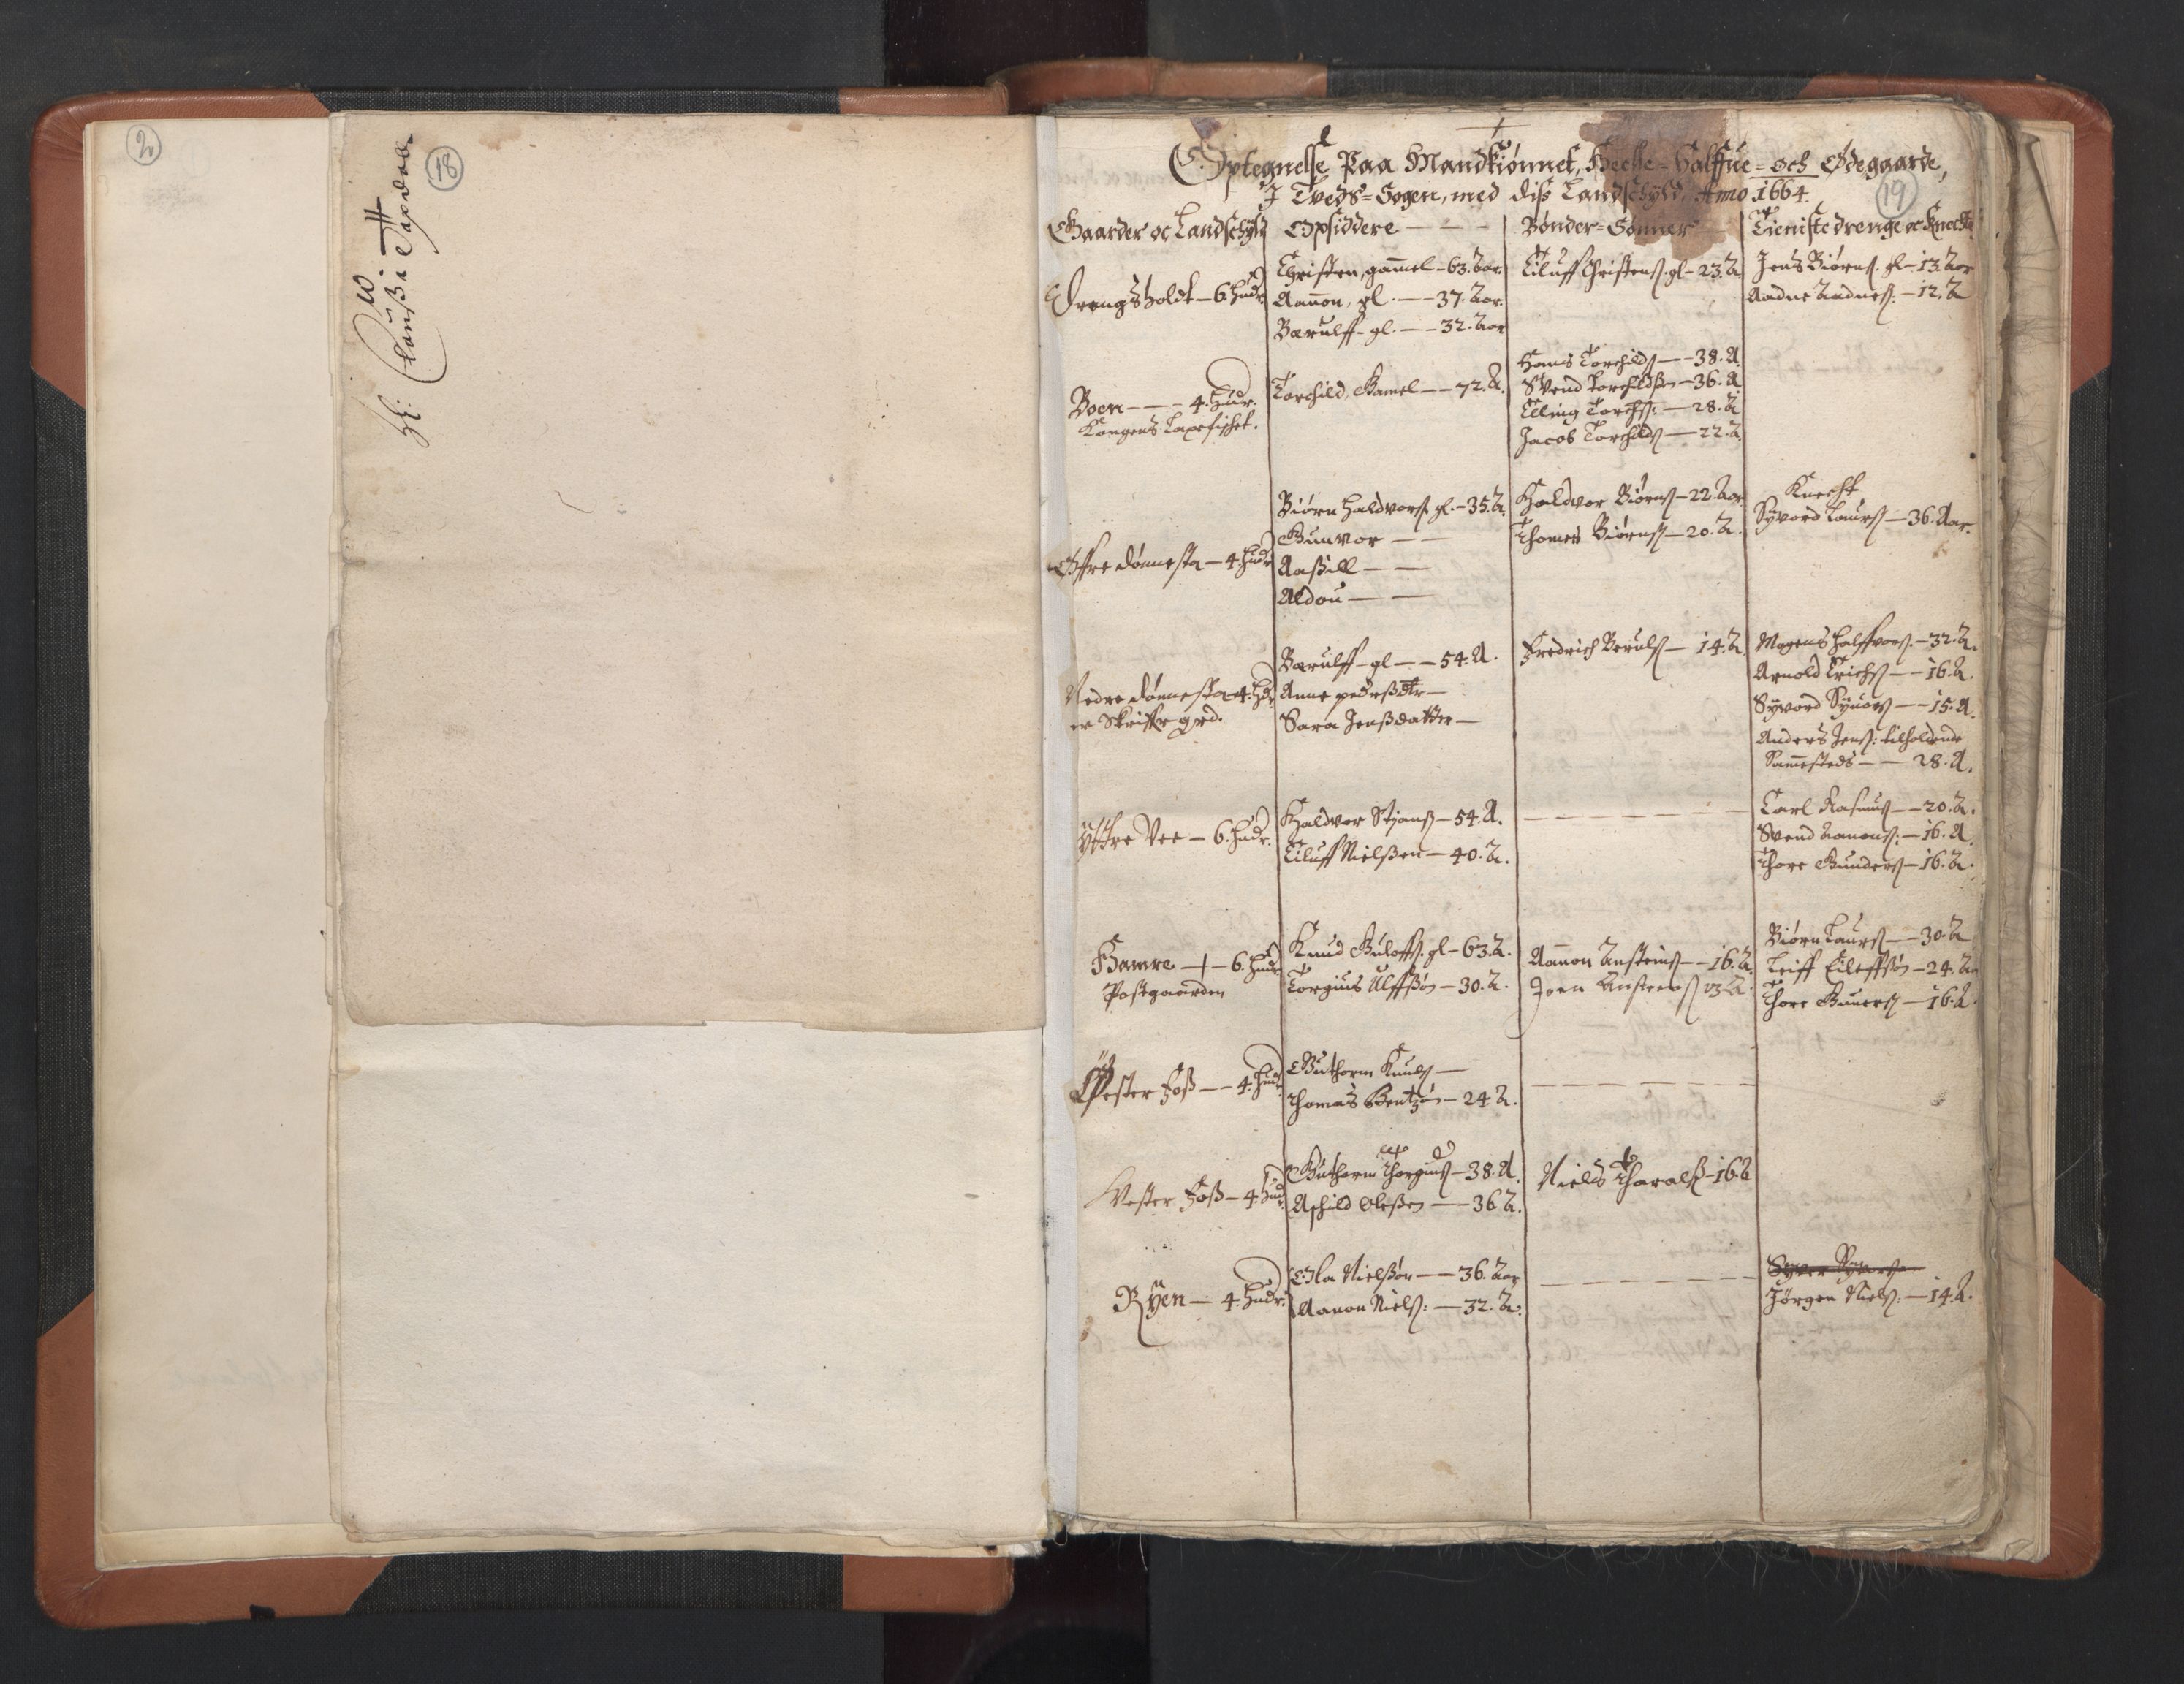 2
18
19
Optegnelse Paa Mandkiønnet, Heele- Halffue- och Ødegaarde,
I Tveds-Sogen, med diß Landschyld, Anno 1664.
Gaarder oc Landschyld
Opsiddere
Bønder-Sønner
Tieniste drenge oc Knecte
Drangsholdt - 6. Hudr
Christen, gammel - 63. Aar.
Aanon, gl. - 37. Aar.
Barulff - gl. - 32. Aar
Eiluff Christens. gl - 23. A
Jens Biørns. gl - 13. Aar
Aadne Aadnes. - 12. A
Boen - 4. Hudr.
Kongens Laxefischet.
Torchild, Gamel - 72. A.
Hans Torchilds - 38. A.
Svend Torchildßen - 36. A
Elling Torchs: - 28. A
Jacob Torchilds - 22. A.
Øffre dønnesta - 4. Hudr
Biørn Haldvors. gl. - 35. A.
Gunvor
Aasill
Aldou
Haldvor Biørns - 22. Aar
Thomes Biørns - 20. A.
Knecht
Syvord Laurs - 36. Aar.
Nedre dønnesta - 4. Hudr
er Skriffr grd.
Barulff - gl - 54. A.
Anne pedersdtr
Sara Jenßdatter
Fredrich Beruls - 14. A.
Mogens Halffvors. - 32. A.
Arnold Erichs - 16. A.
Syvord Syvors - 15. A.
Anders Jens: tilholdende
Sammesteds - 28. A.
Yttre Vee - 6. Hudr.
Haldvor Stians - 54. A.
Eiluff Nielßen - 40. A.
Carl Rasmus - 20. A.
Svend Aanons: - 16. A.
Thore Gunders - 16. A.
Hamre - 6. Hudr
Postgaarden
Knud Guloffs. gl - 63. A.
Torgius Ulffßøn - 30. A.
Aanon Ansteins - 16. A.
Joen Ansteens 13 A.
Biørn Laurs - 30. A
Leiff Eileffsøn - 24. A
Thore Guners - 16. A.
Øster Foß - 4. Hudr.
Guthorm Knuds
Thomas Bentzøn - 24 A.
Vester Foß - 4. Hudr.
Guthorm Thorgius - 38. A.
Aschild Oleßen - 36. A.
Niels Tharals - 16. A
Ryen - 4. Hudr.
Ola Nielßøn - 36. Aar
Aanon Niels: - 32. A.
Jørgen Niels: - 14. A.